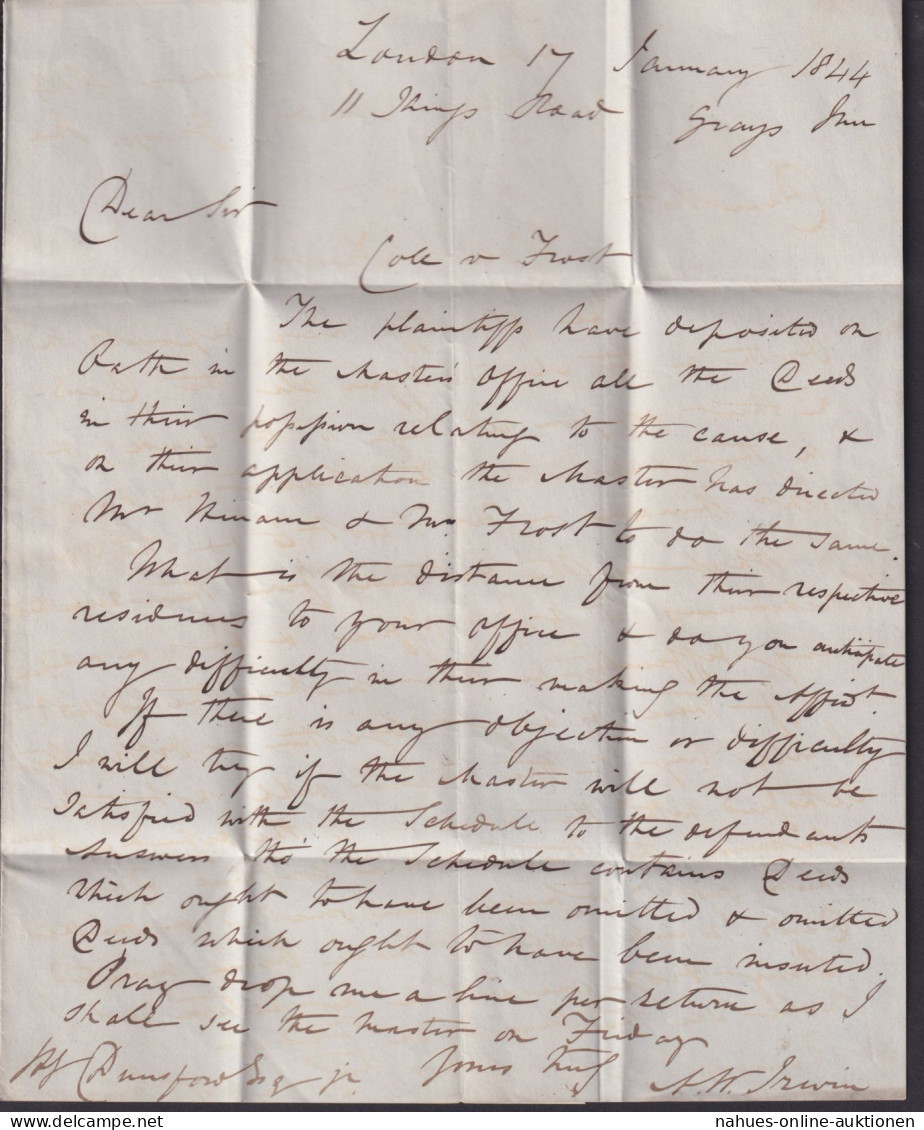 London 17 January 1844
11 Kings Road Grays Inn
Dear Sir
Cole v Frost
The plaintiffs have deposited on
Oath in the Master's Office all the Deeds
in their possession relating to the cause, &
on their application the Master has directed
Mr & Mrs Frost to do the same.
What is the distance from their respective
residences to your office & do you anticipate
any difficulty in their making the Affidt.
If there is any objection or difficulty
I will try if the Master will not be
satisfied with the Schedule to the defendants
Answers tho' the Schedule contains Deeds
which ought to have been omitted & omitted
Deeds which ought to have been inserted.
Pray drop me a line per return as I
shall see the Master on Friday
Dunsford Esq jr. Yours truly A. W. Irwin
nahues-online-auktionen